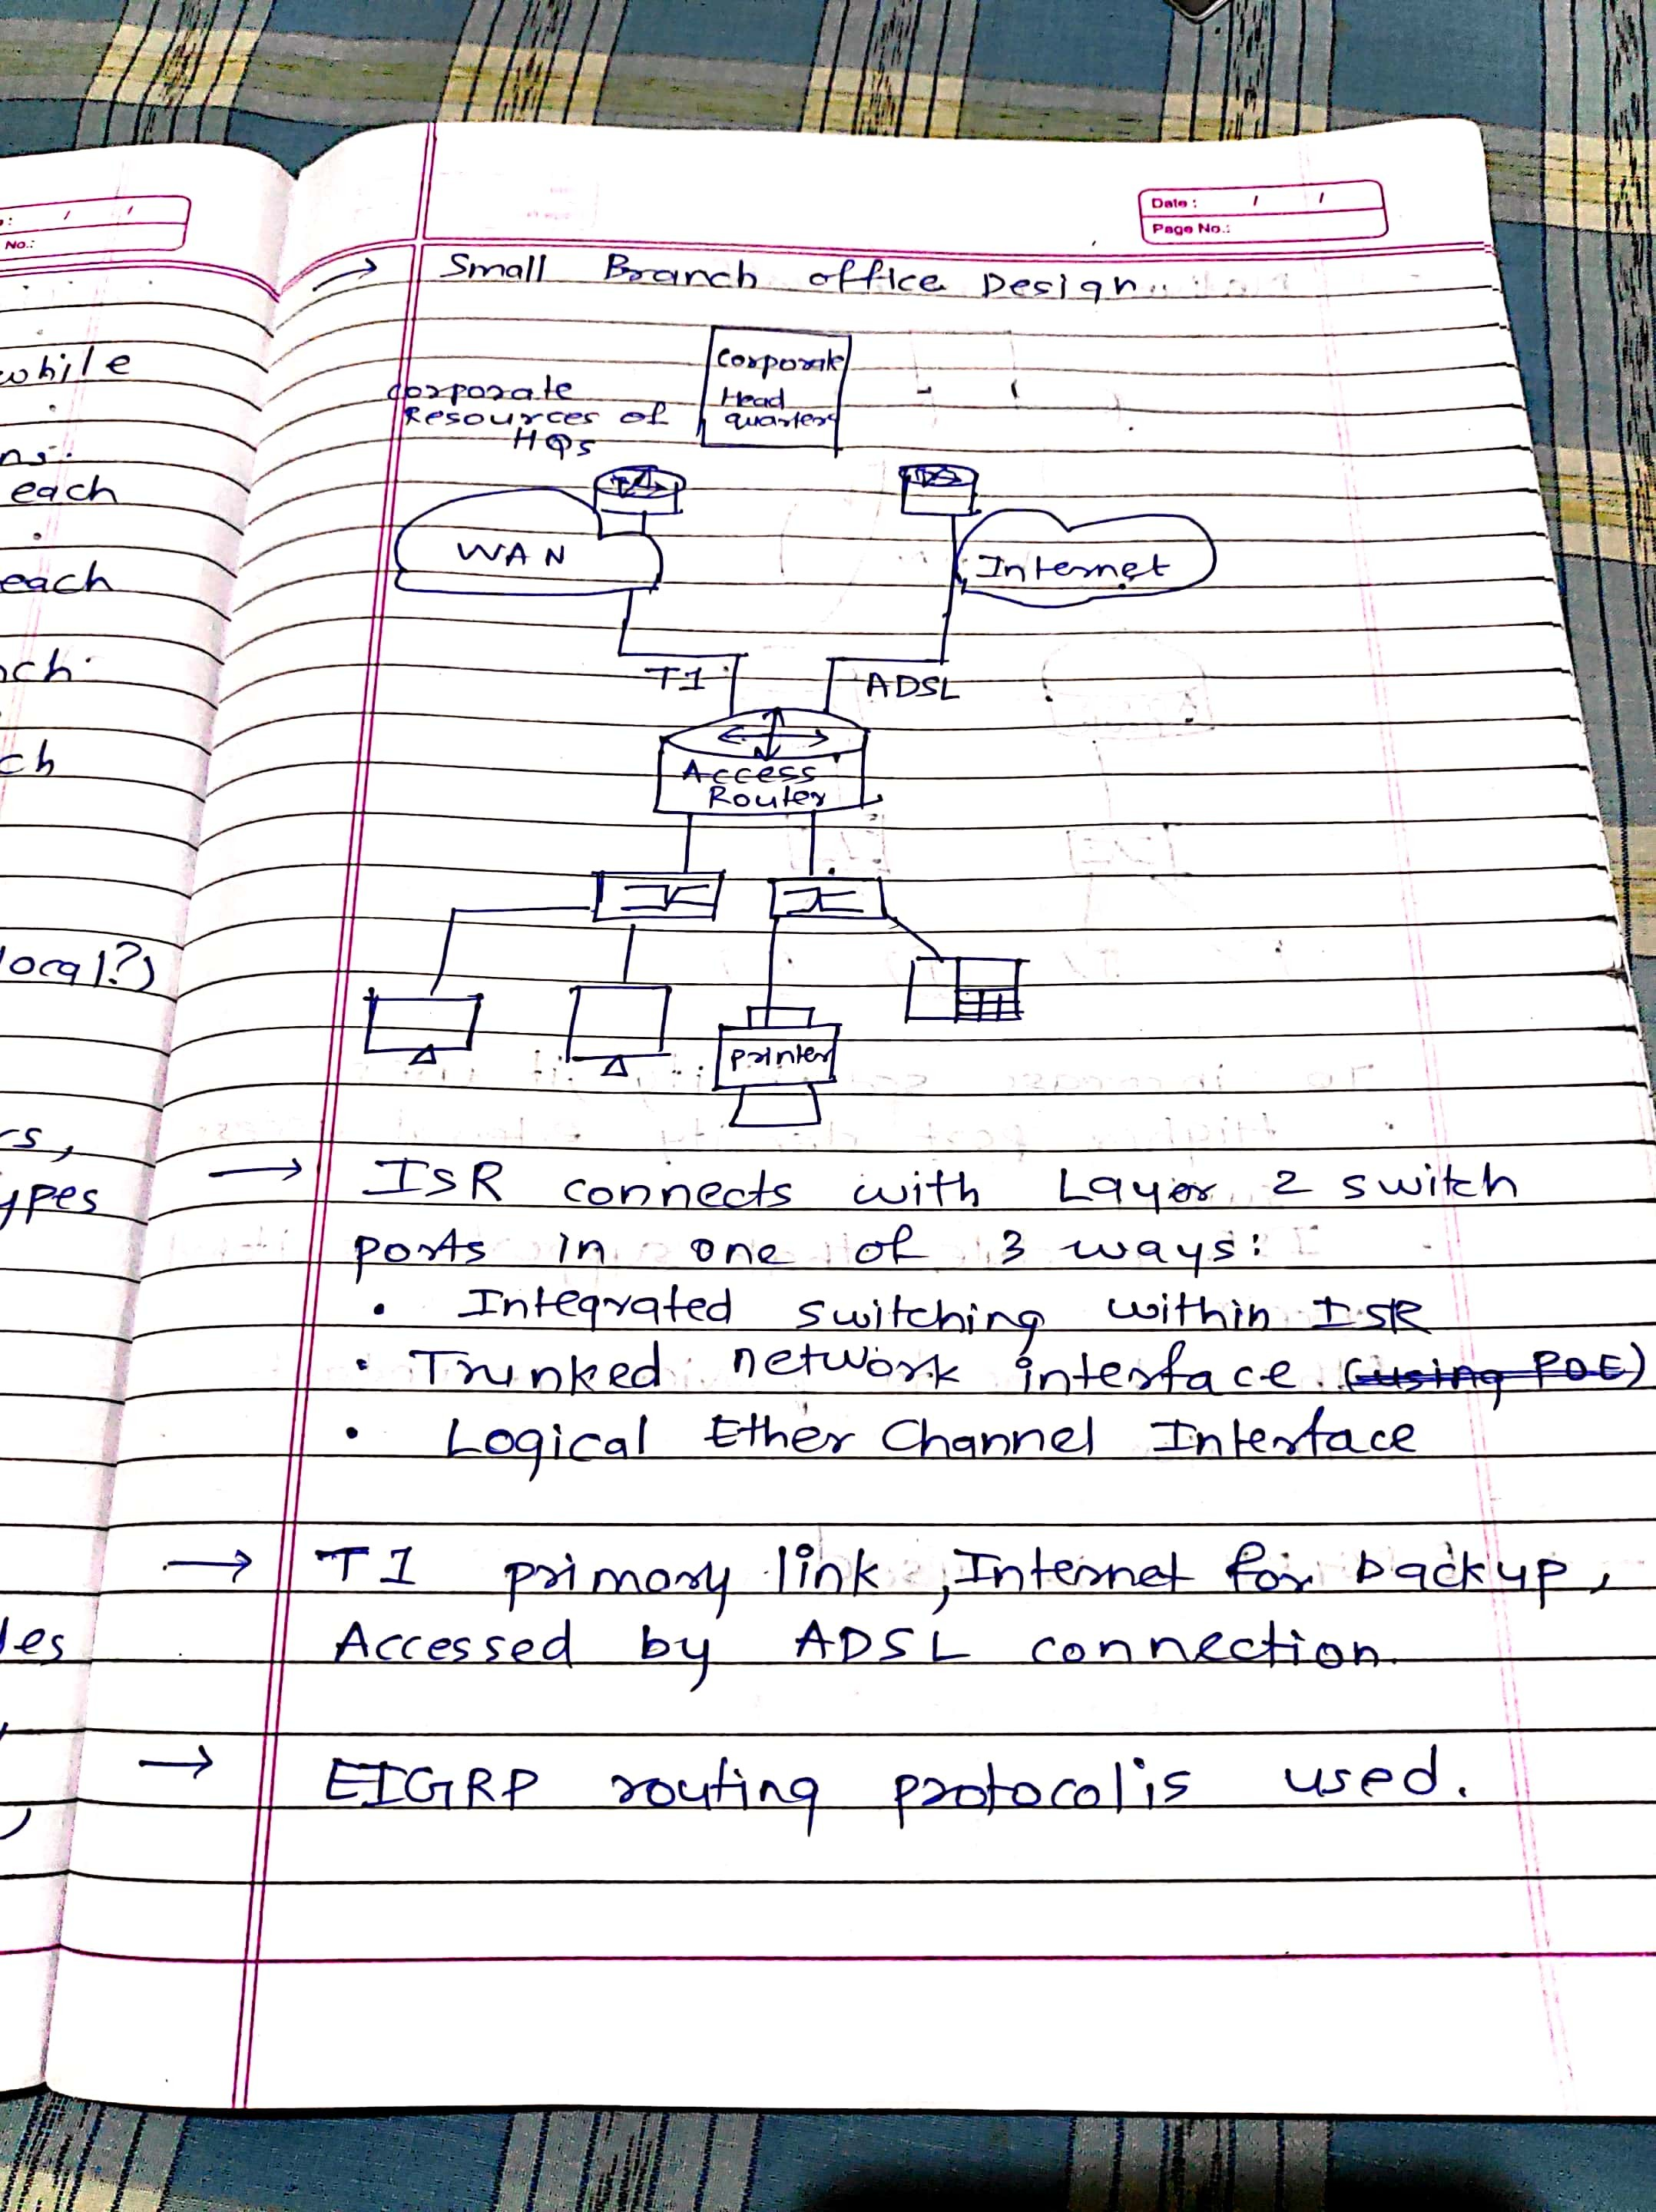 No.:
while
each
each
ch
local?)
ypes
Date : / /
Page No.:
→ Small Branch office Design
Corporate
Head
quarters
Corporate
Resources of
HQs
WAN
Internet
T1
ADSL
Access
Router
printer
→ ISR connects with Layer 2 switch
ports in one of 3 ways:
• Integrated switching within ISR
• Trunked network interface. (using POE)
• Logical Ether Channel Interface
→ T1 primary link, Internet for backup,
Accessed by ADSL connection.
→ EIGRP routing protocol is used.